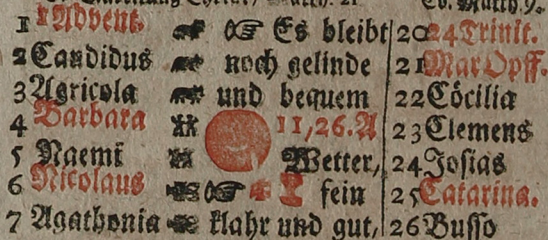 1 1 Advent. Es bleibt 20 24 Trinit.
2 Candidus noch gelinde 21 Mar Opff.
3 Agricola und bequem 22 Cöcilia
4 Barbara 11,26.A 23 Clemens
5 Naemi Wetter, 24 Josias
6 Nicolaus fein 25 Catarina.
7 Agathonia klahr und gut, 26 Busso